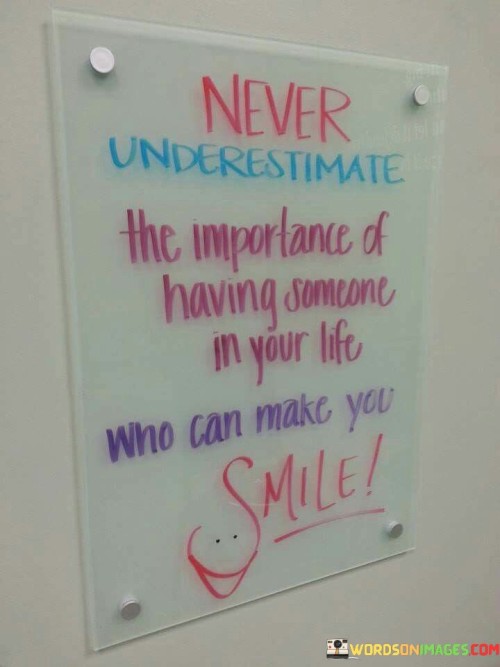 NEVER
UNDERESTIMATE
the importance of
having someone
in your life
who can make you
SMILE!
WORDSONIMAGES.COM